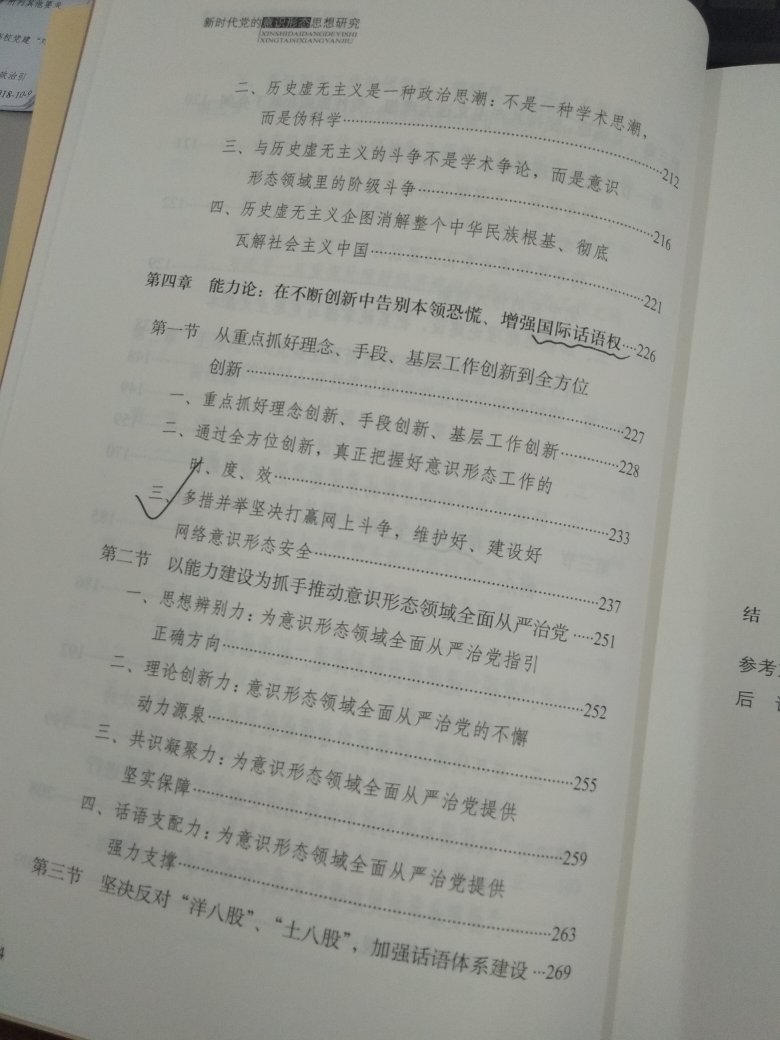 新时代党的意识形态思想研究
XINSHIDAIDANGDEYISHI
XINGTAISIXIANGYANJIU
二、历史虚无主义是一种政治思潮：不是一种学术思潮，
而是伪科学……212
三、与历史虚无主义的斗争不是学术争论，而是意识
形态领域里的阶级斗争……216
四、历史虚无主义企图消解整个中华民族根基、彻底
瓦解社会主义中国……221
第四章 能力论：在不断创新中告别本领恐慌、增强国际话语权…226
第一节 从重点抓好理念、手段、基层工作创新到全方位
创新……227
一、重点抓好理念创新、手段创新、基层工作创新……228
二、通过全方位创新，真正把握好意识形态工作的
时、度、效……233
三、多措并举坚决打赢网上斗争，维护好、建设好
网络意识形态安全……237
第二节 以能力建设为抓手推动意识形态领域全面从严治党……251
一、思想辨别力：为意识形态领域全面从严治党指引
正确方向……252
二、理论创新力：意识形态领域全面从严治党的不懈
动力源泉……255
三、共识凝聚力：为意识形态领域全面从严治党提供
坚实保障……259
四、话语支配力：为意识形态领域全面从严治党提供
强力支撑……263
第三节 坚决反对“洋八股”、“土八股”，加强话语体系建设…269
4
结
参考
后